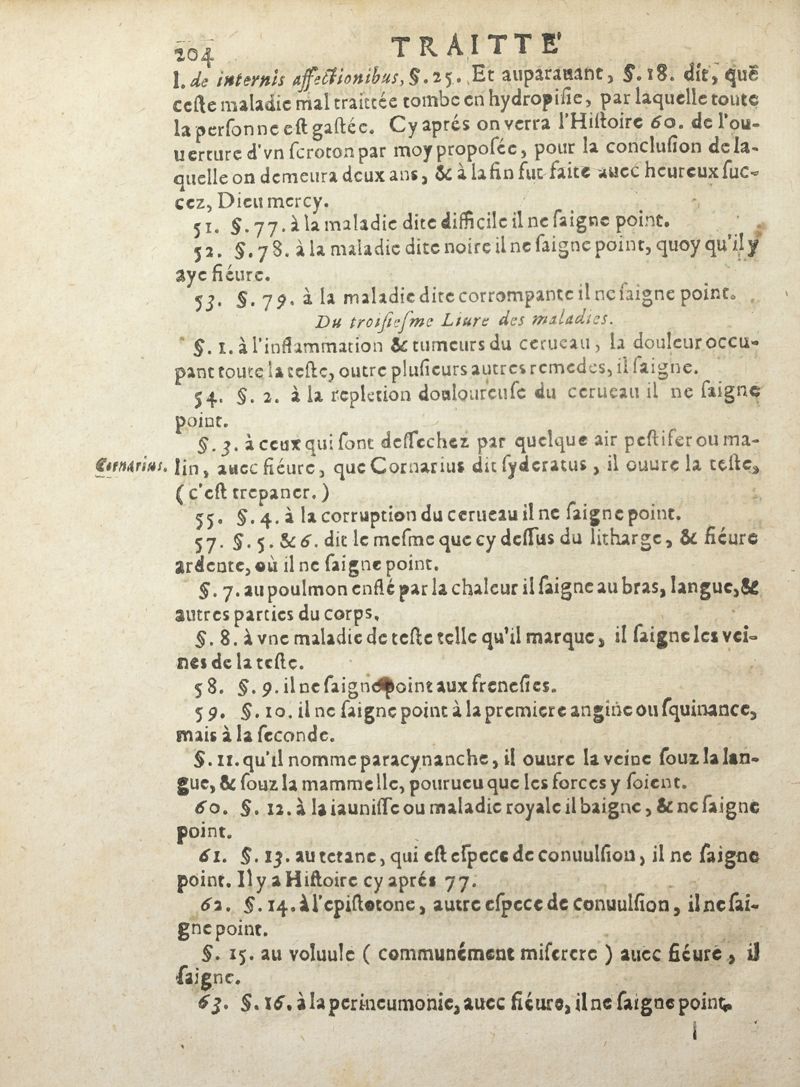 204 TRAITTE'
l. de internis affectionibus, §. 25. Et auparauant, §. 18. dit, quē
ceste maladie mal traictée tombe en hydropisie, par laquelle toute
la personne est gastée. Cy aprés on verra l'Histoire 60. de l'ou-
uerture d'vn scroton par moy proposée, pour la conclusion de la-
quelle on demeura deux ans, & à la fin fut faite auec heureux suc-
cez, Dieu mercy.
51. §. 77. à la maladie dite difficile il ne saigne point.
52. §. 78. à la maladie dite noire il ne saigne point, quoy qu'il y
aye fiéure.
53. §. 79. à la maladie dite corrompante il ne saigne point.
Du troisiesme Liure des maladies.
§. 1. à l'inflammation & tumeurs du cerueau, la douleur occu-
pant toute la teste, outre plusieurs autres remedes, il saigne.
54. §. 2. à la repletion douloureuse du cerueau il ne saigne
point.
§. 3. à ceux qui sont dessechez par quelque air pestifer ou ma-
Cornarius. lin, auec fiéure, que Cornarius dit syderatus, il ouure la teste,
(c'est trepaner.)
55. §. 4. à la corruption du cerueau il ne saigne point.
57. §. 5. & 6. dit le mesme que cy dessus du litharge, & fiéure
ardente, où il ne saigne point.
§. 7. au poulmon enflé par la chaleur il saigne au bras, langue, &
autres parties du corps.
§. 8. à vne maladie de teste telle qu'il marque, il saigne les vei-
nes de la teste.
58. §. 9. il ne saigne point aux frenesies.
59. §. 10. il ne saigne point à la premiere angine ou squinance,
mais à la seconde.
§. 11. qu'il nomme paracynanche, il ouure la veine souz la lan-
gue, & souz la mammelle, pourueu que les forces y soient.
60. §. 12. à la iaunisse ou maladie royale il baigne, & ne saigne
point.
61. §. 13. au tetane, qui est espece de conuulsion, il ne saigne
point. Il y a Histoire cy aprés 77.
62. §. 14. à l'epistotone, autre espece de conuulsion, il ne sai-
gne point.
§. 15. au voluule ( communément miserere ) auec fiéure, il
saigne.
63. §. 16. à la perineumonie, auec fiéure, il ne saigne point,
i